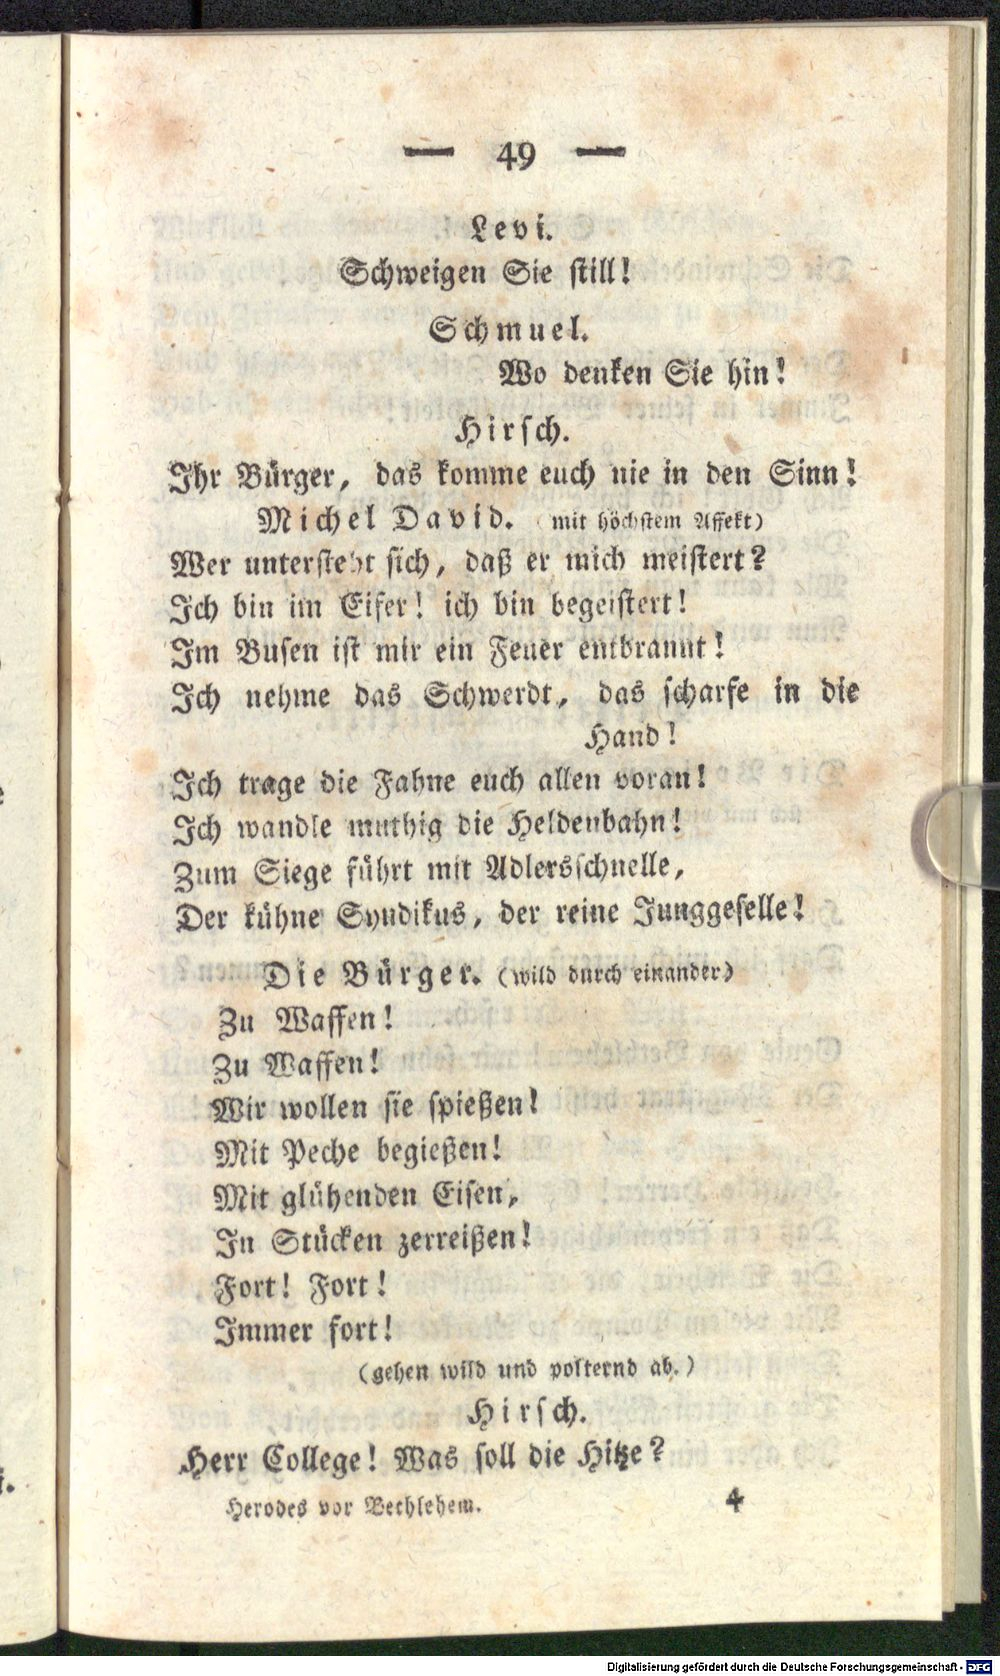 — 49 —
Levi.
Schweigen Sie still!
Schmuel.
Wo denken Sie hin!
Hirsch.
Ihr Bürger, das komme euch nie in den Sinn!
Michel David. (mit höchstem Affekt)
Wer untersteht sich, daß er mich meistert?
Ich bin im Eifer! ich bin begeistert!
Im Busen ist mir ein Feuer entbrannt!
Ich nehme das Schwerdt, das scharfe in die
Hand!
Ich trage die Fahne euch allen voran!
Ich wandle muthig die Heldenbahn!
Zum Siege führt mit Adlersschnelle,
Der kühne Syndikus, der reine Junggeselle!
Die Bürger. (wild durch einander)
Zu Waffen!
Zu Waffen!
Wir wollen sie spießen!
Mit Peche begießen!
Mit glühenden Eisen,
In Stücken zerreißen!
Fort! Fort!
Immer fort!
(gehen wild und polternd ab.)
Hirsch.
Herr College! Was soll die Hitze?
Herodes vor Bethlehem. 4
Digitalisierung gefördert durch die Deutsche Forschungsgemeinschaft - DFG